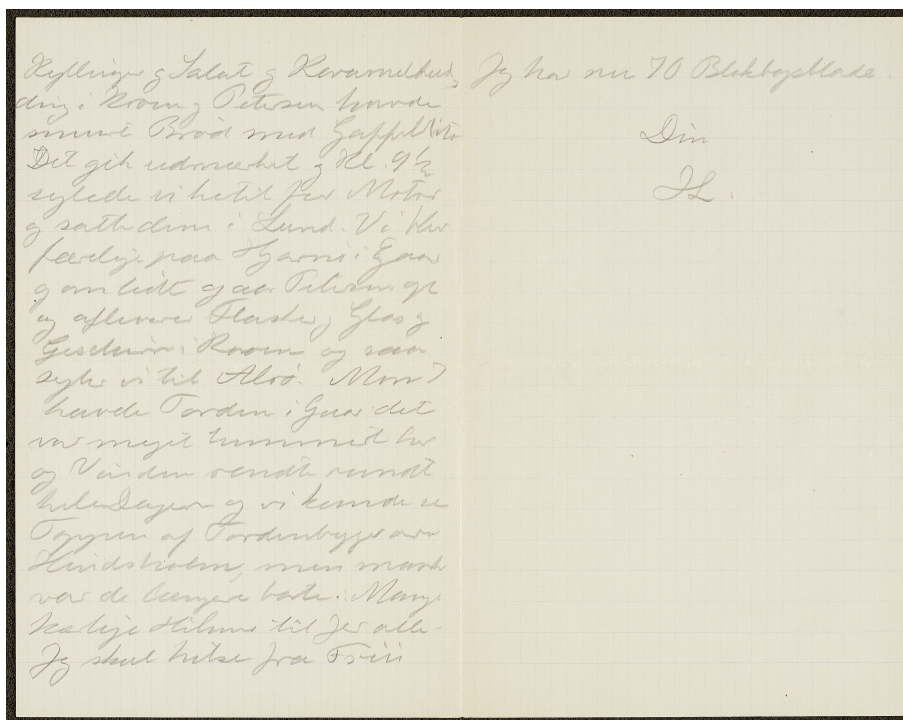 Kyllinger og Salat og Karamelbud,
ding i Kroen og Petersen havde
smurt Brød med Gaffelbita
Det gik udmærket og Kl. 9½
sejlede vi hertil per Motor
og satte dem i Lund. Vi blev
færdige paa Hjarnø i Gaar
og om lidt gaar Petersen op
og afleverer Flasker og Glas og
i Kroen og saa
sejler vi til Alrø. Mon I
havde Torden i Gaar det
var meget lummert her
og Vinden vendte rundt
hele Dagen og vi kunde se
Toppen af Tordenbyger over
Hindsholm, men maaske
var de længere borte. Mange
kærlige Hilsner til Jer alle.
Jeg skal hilse fra Friis
Jeg har nu 70 Blokbogsblade.
Din
JL.